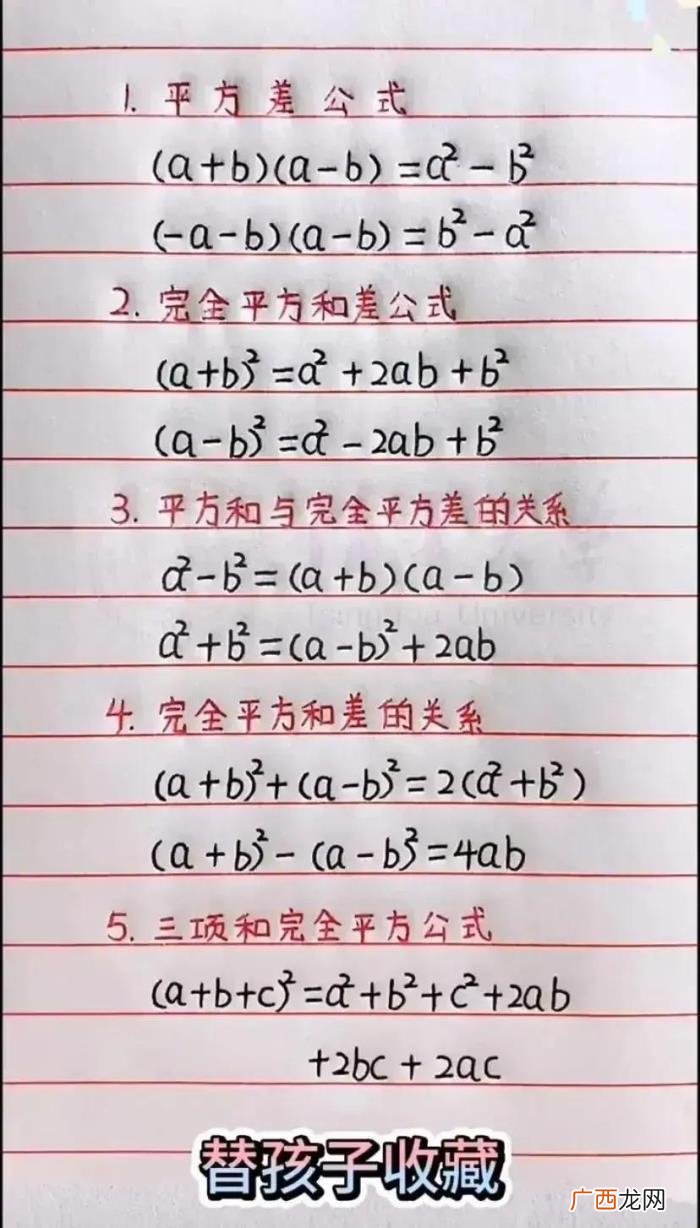 1. 平方差公式
(a+b)(a-b)=a²-b²
(-a-b)(a-b)=b²-a²
2. 完全平方和差公式
(a+b)²=a²+2ab+b²
(a-b)²=a²-2ab+b²
3. 平方和与完全平方差的关系
a²-b²=(a+b)(a-b)
a²+b²=(a-b)²+2ab
4. 完全平方和差的关系
(a+b)²+(a-b)²=2(a²+b²)
(a+b)²-(a-b)²=4ab
5. 三项和完全平方公式
(a+b+c)²=a²+b²+c²+2ab
+2bc+2ac
替孩子收藏
广西龙网